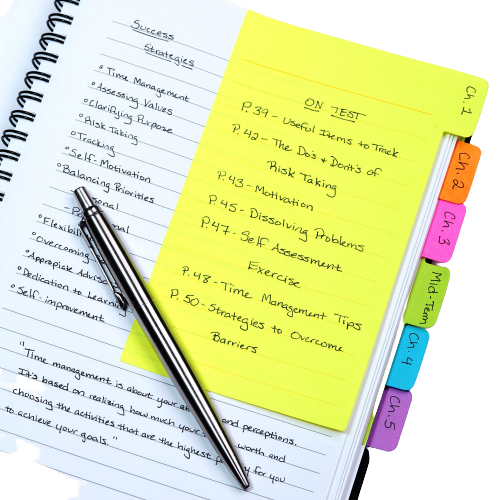 Success
Strategies
° Time Management
° Assessing Values
° Clarifying Purpose
° Risk Taking
° Tracking
° Self-Motivation
° Balancing Priorities
° Overcoming
° Dedication to Learning
° Self-improvement
"Time management is about your
and perceptions.
It's based on realizing how much your
worth and
choosing the activities that are the highest
for you
to achieve your goals."
ON TEST
P.39 - Useful Items to Track
P.42 - The Do's + Dont's of
Risk Taking
P.43 - Motivation
P.45 - Dissolving Problems
P.47 - Self Assessment
Exercise
P.48 - Time Management Tips
P.50 - Strategies to Overcome
Barriers
Ch. 1
Ch. 2
Ch. 3
Mid-Term
Ch. 4
Ch. 5